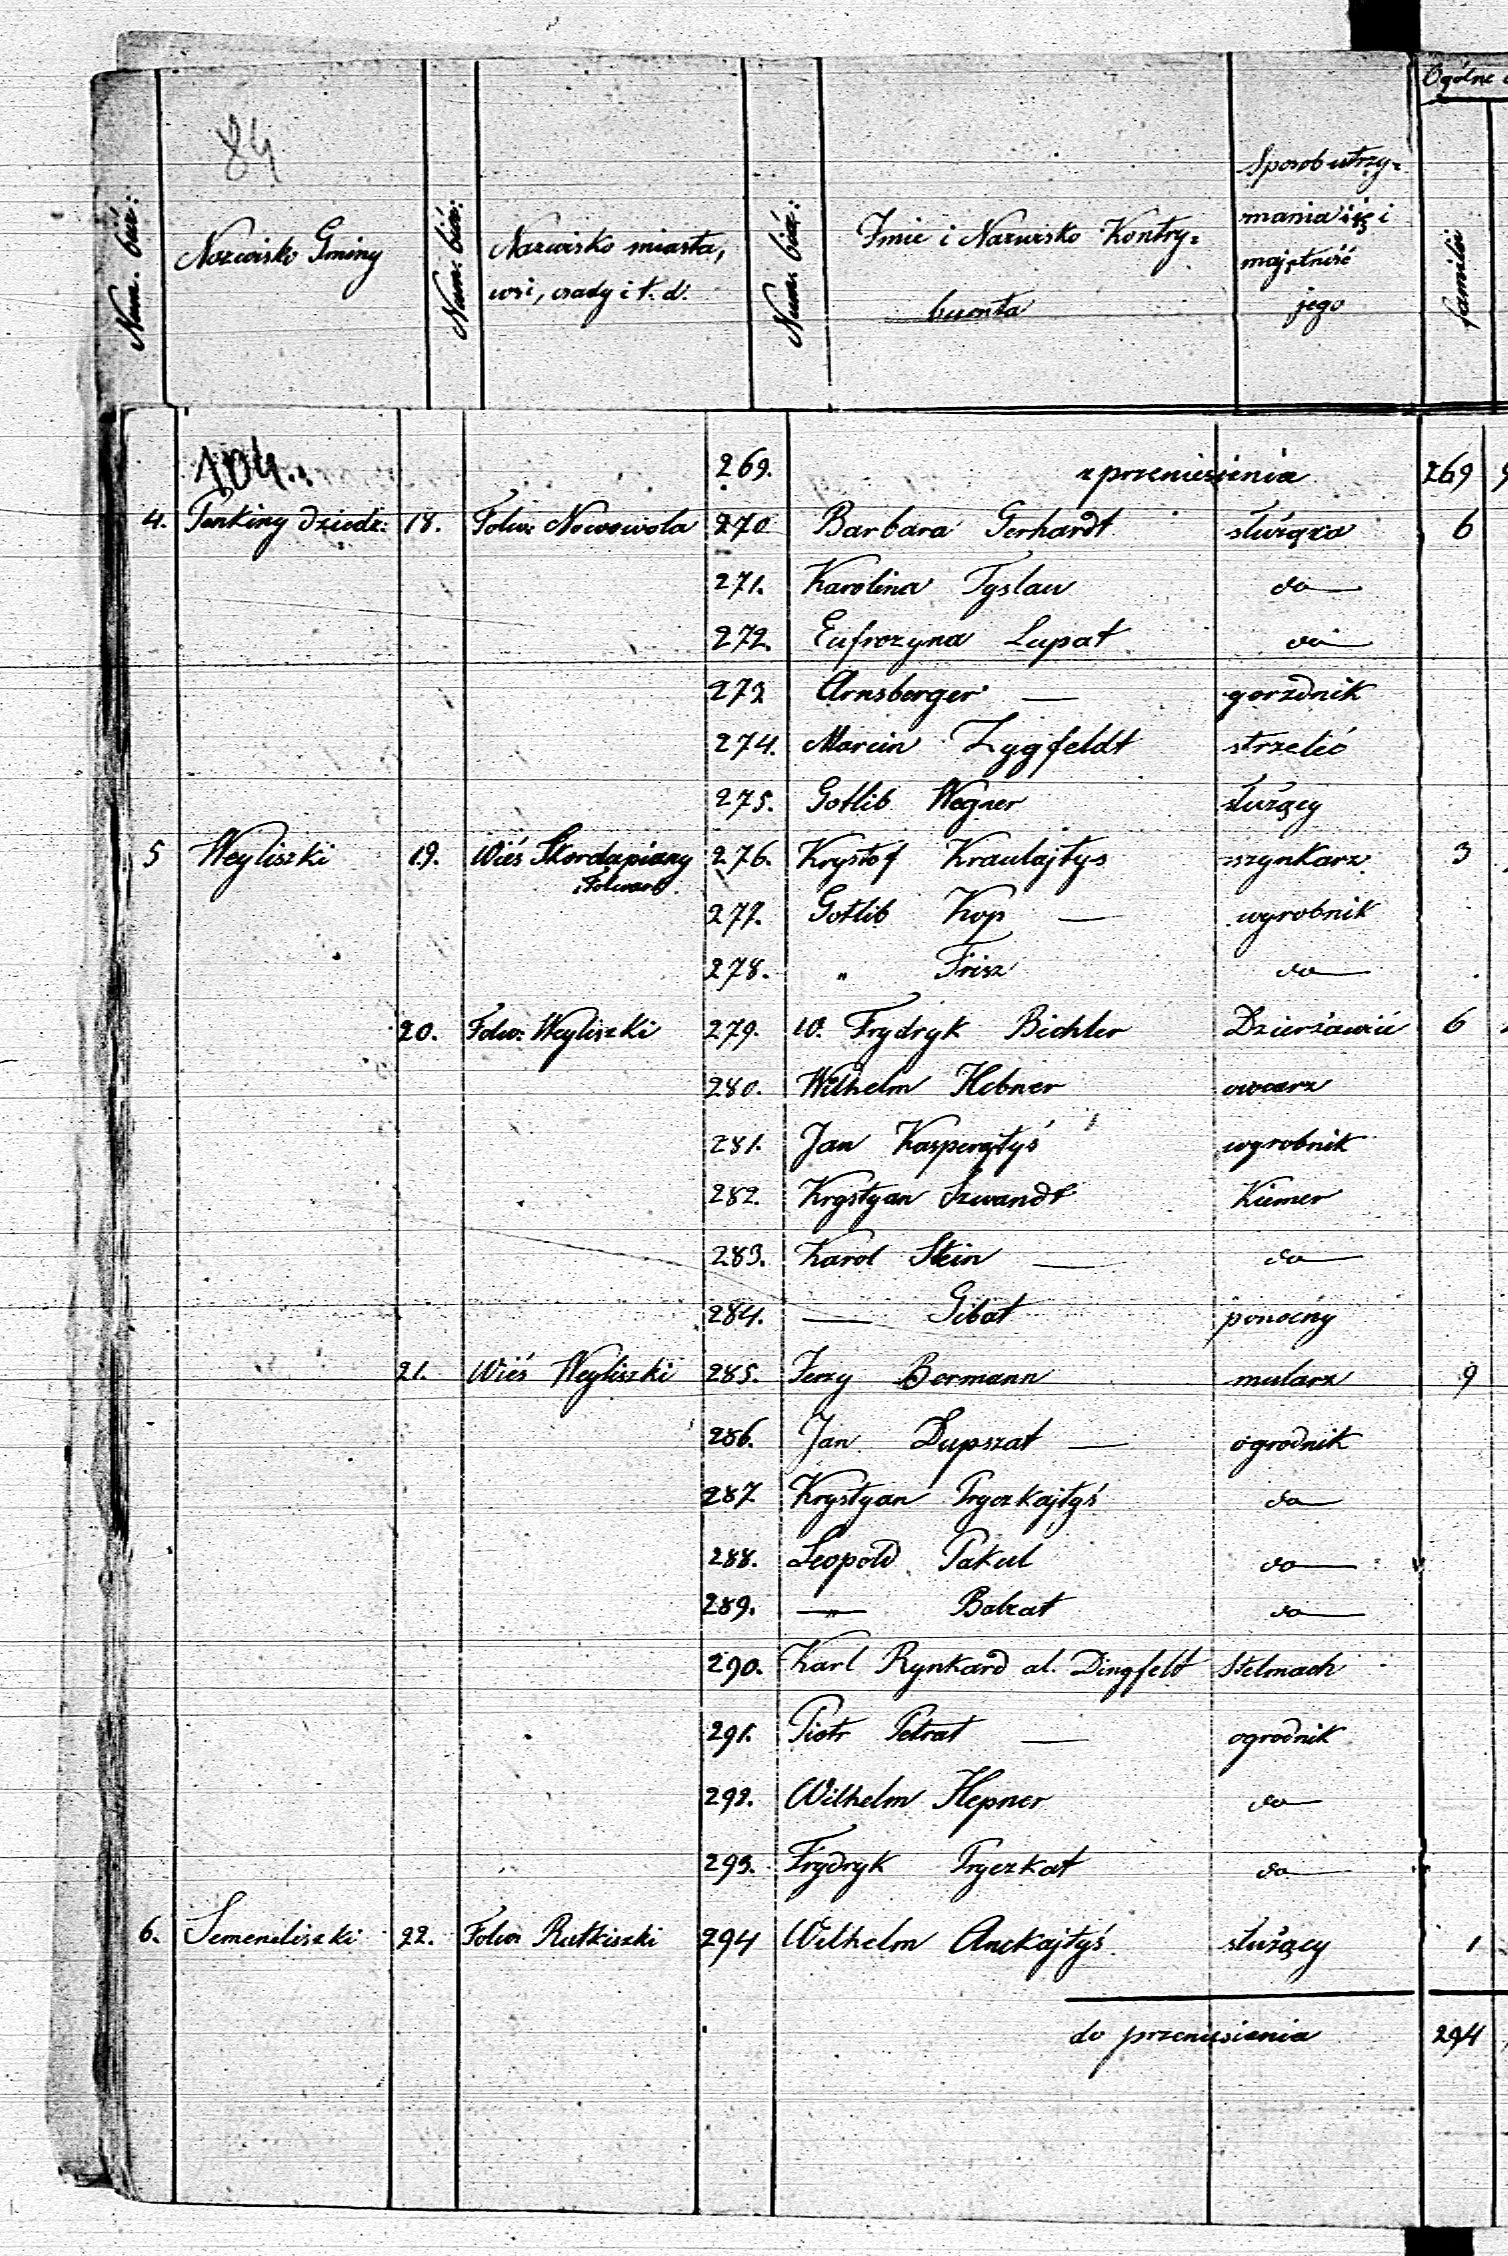 84
Num. bież:
Nazwisko Gminy
Num. bież:
Nazwisko miasta,
wsi, osady i t. d.
Num. bież:
Imie i Nazwisko Kontry=
buenta
Sposob utrzy=
mania się i
majętność
jego
Ogólne
familii
104.
269. z przeniesienia 269
4. Penkiny dziedz: 18. Folw. Nowowola 270 Barbara Gerhardt służąca 6
271. Karolina Tyslau do
272. Eufrozyna Lupat do
273 Arnsberger — gorzdnik
274. Marcin Zygfeldt strzelić
275. Gotlib Wegner służący
5 Weyliszki 19. Wieś Skordupiany 276. Krystof Kraulajtys szynkarz 3
Folwark
277. Gotlib Kop — wyrobnik
278. " Frisz do
20. Folw. Weyliszki 279. W. Frydryk Bichler Dzierżawić 6
280. Wilhelm Hebner owcarz
281. Jan Kasperajtyś wyrobnik
282. Krystyan Szwandt Kumer
283. Karol Stein — do
284. — Gibat ponocny
21. Wieś Weyliszki 285. Jerzy Bormann mularz 9
286. Jan Dupszat — ogrodnik
287. Krystyan Pryczkajtyś do
288. Leopold Pakul do
289. — " Balzat do
290. Karl Rynkard al. Dingfeld Stelmach
291. Piotr Petrat — ogrodnik
292. Wilhelm Hepner do
293. Frydryk Pryczkat do
6. Semeneliszki 22. Folw. Rutkiszki 294 Wilhelm Anckajtyś służący 1
do przeniesienia 294